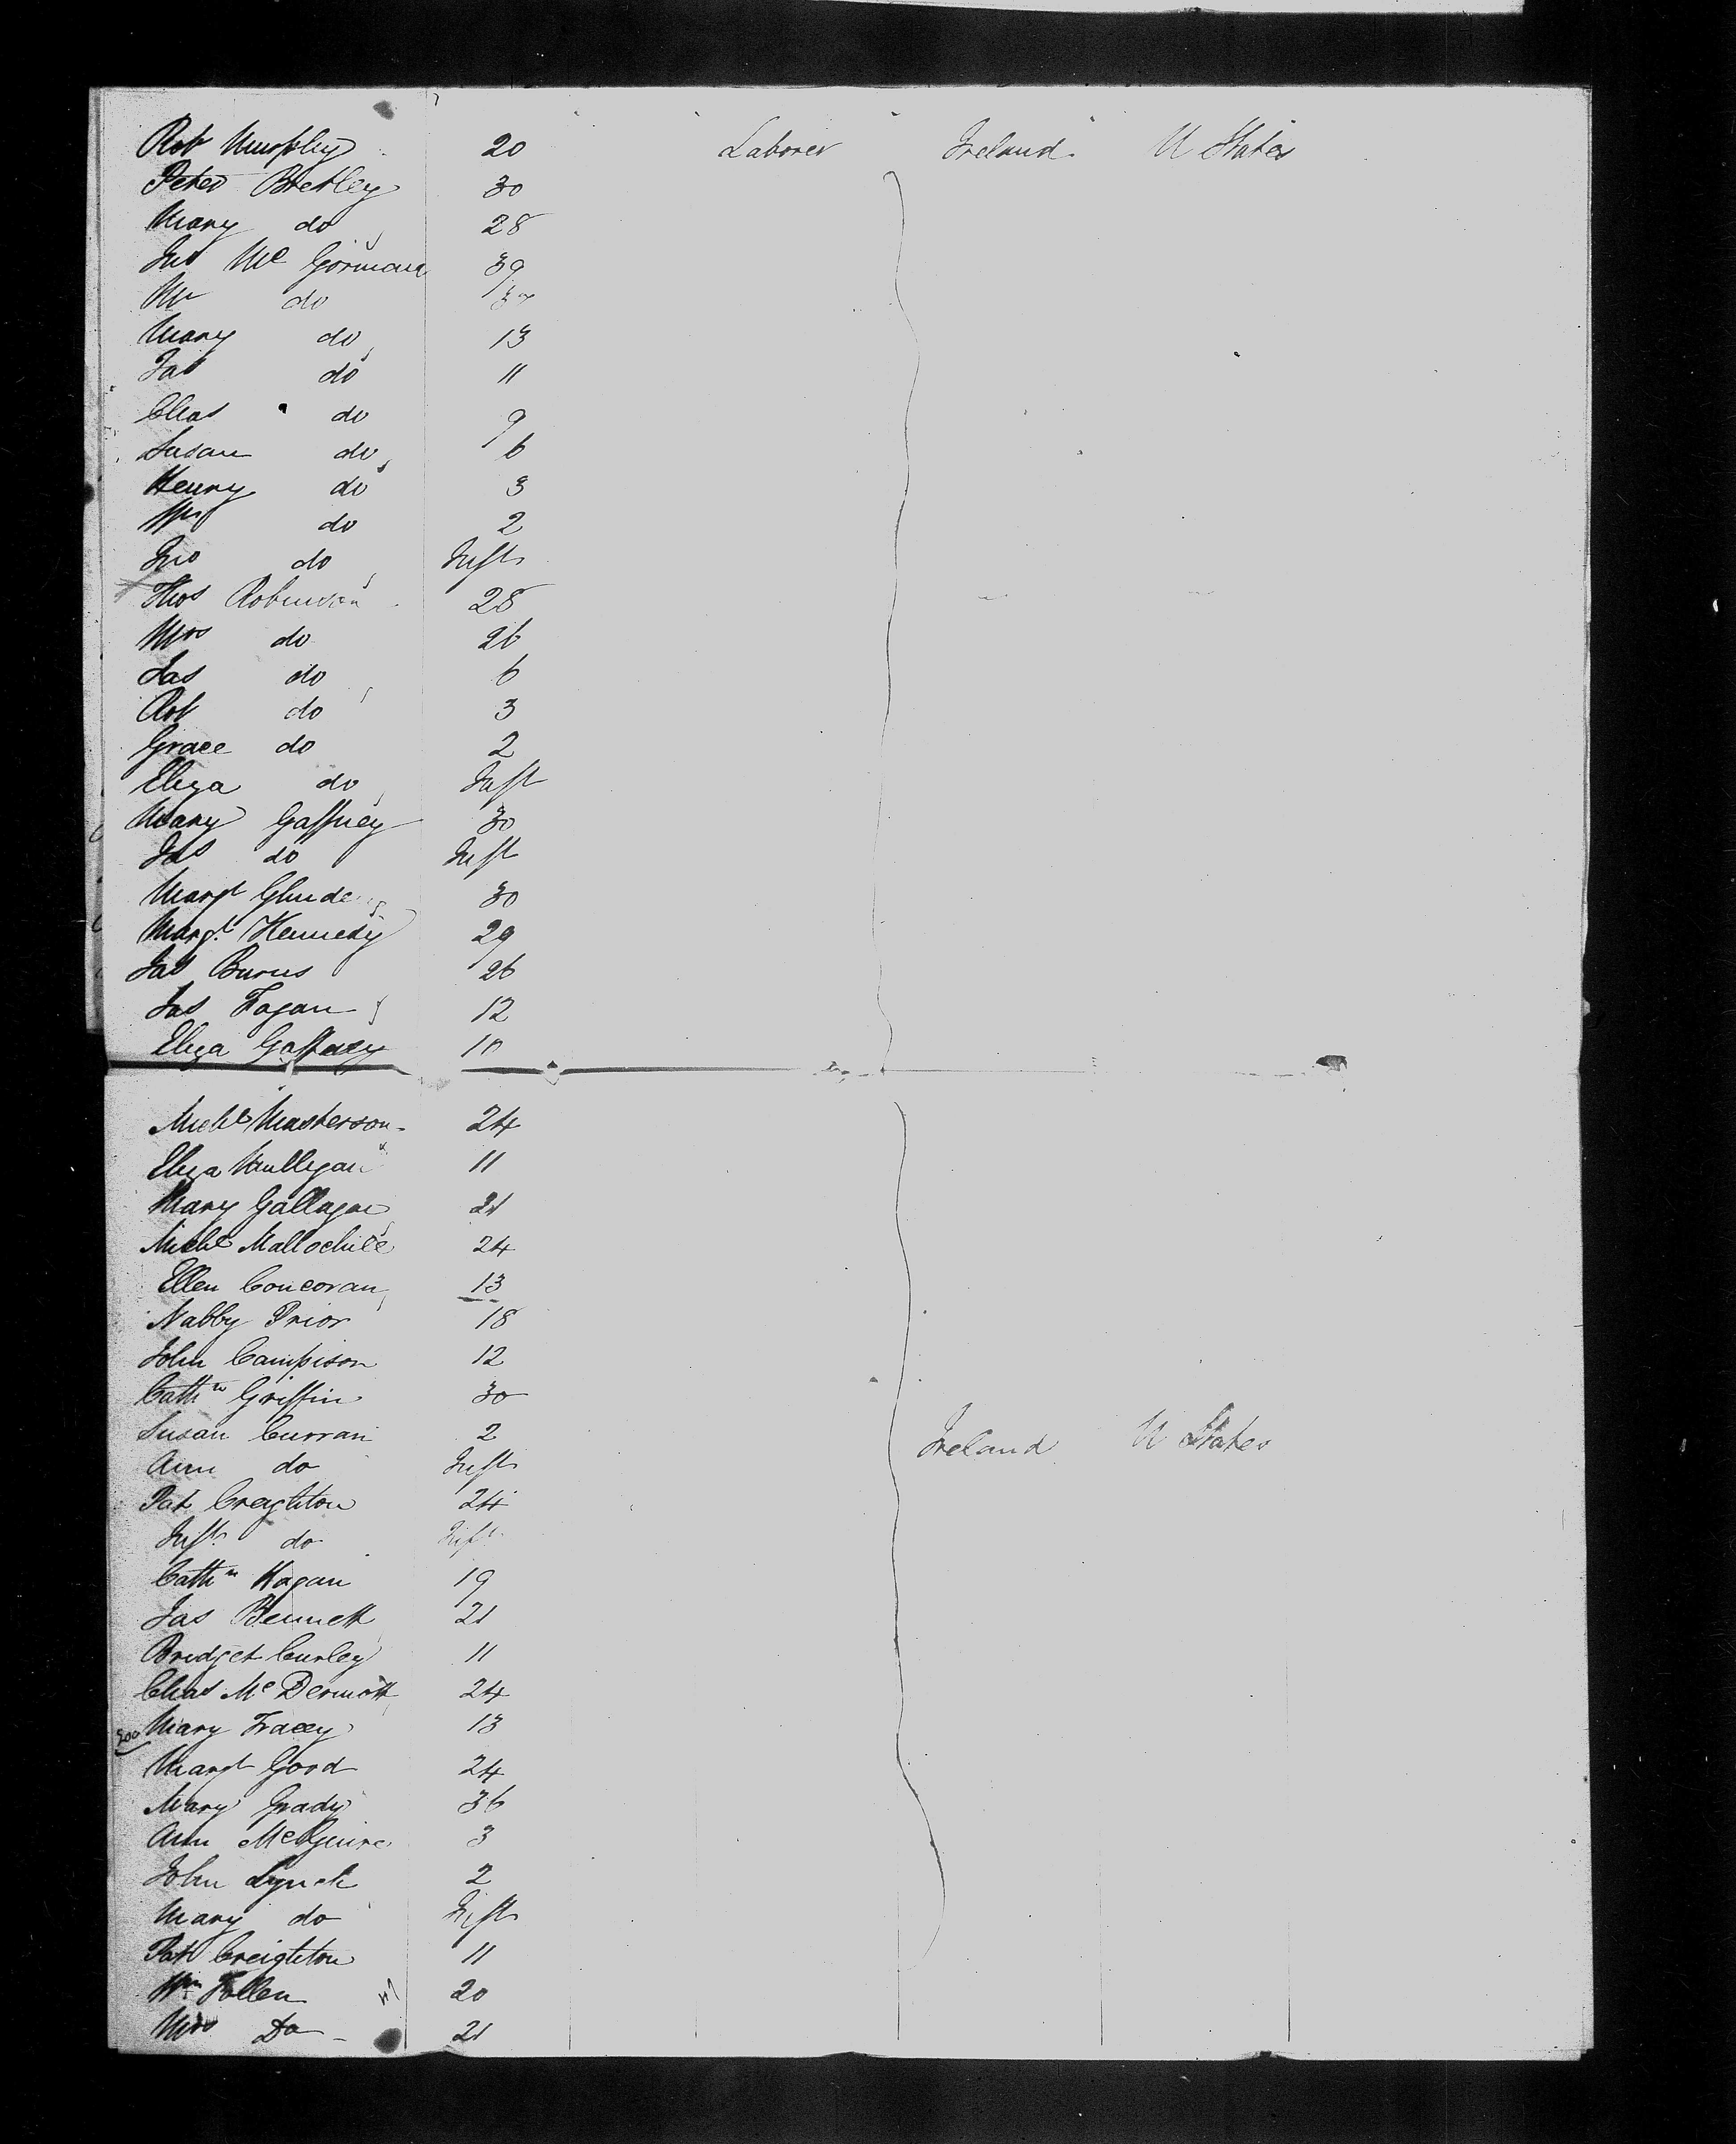 Rob Murphy 20 Laborer Ireland U States
Peter Brekley 30
Mary do 28
Jno Mc Gorman 39
Mr do
Mary do 13
Jas do 11
Chas do 9
Susan do 6
Henry do 3
Wm do 2
Jno do Inft
Thos Robinson 28
Mrs do 26
Jas do 6
Rob do 3
Grace do 2
Eliza do Inft
Mary Gaffney 30
Jas do Inft
Margt 30
Margt Kennedy 29
Jas Burns 26
Jas Fagan 12
Eliza Gaffney 10
Michl Masterson 24
Eliza Mulligan 11
Mary Gallagar 21
Michl 24
Ellen Concoran 13
Nabby Prior 18
John Campison 12
Cathn Griffin 30
Susan Curran 2 Ireland U States
Ann do Inft
Pat Creighton 24
Inft do Inft
Cathn Hagan 19
Jas Bennett 21
Bridget Curley 11
Chas Mc Dermott 24
300 Mary Tracey 13
Margt Good 24
Mary Grady 36
Ann McGuire 3
John Lynch 2
Mary do Inft
Pat Creighton 11
Wm Follen 20
Mrs Do 21